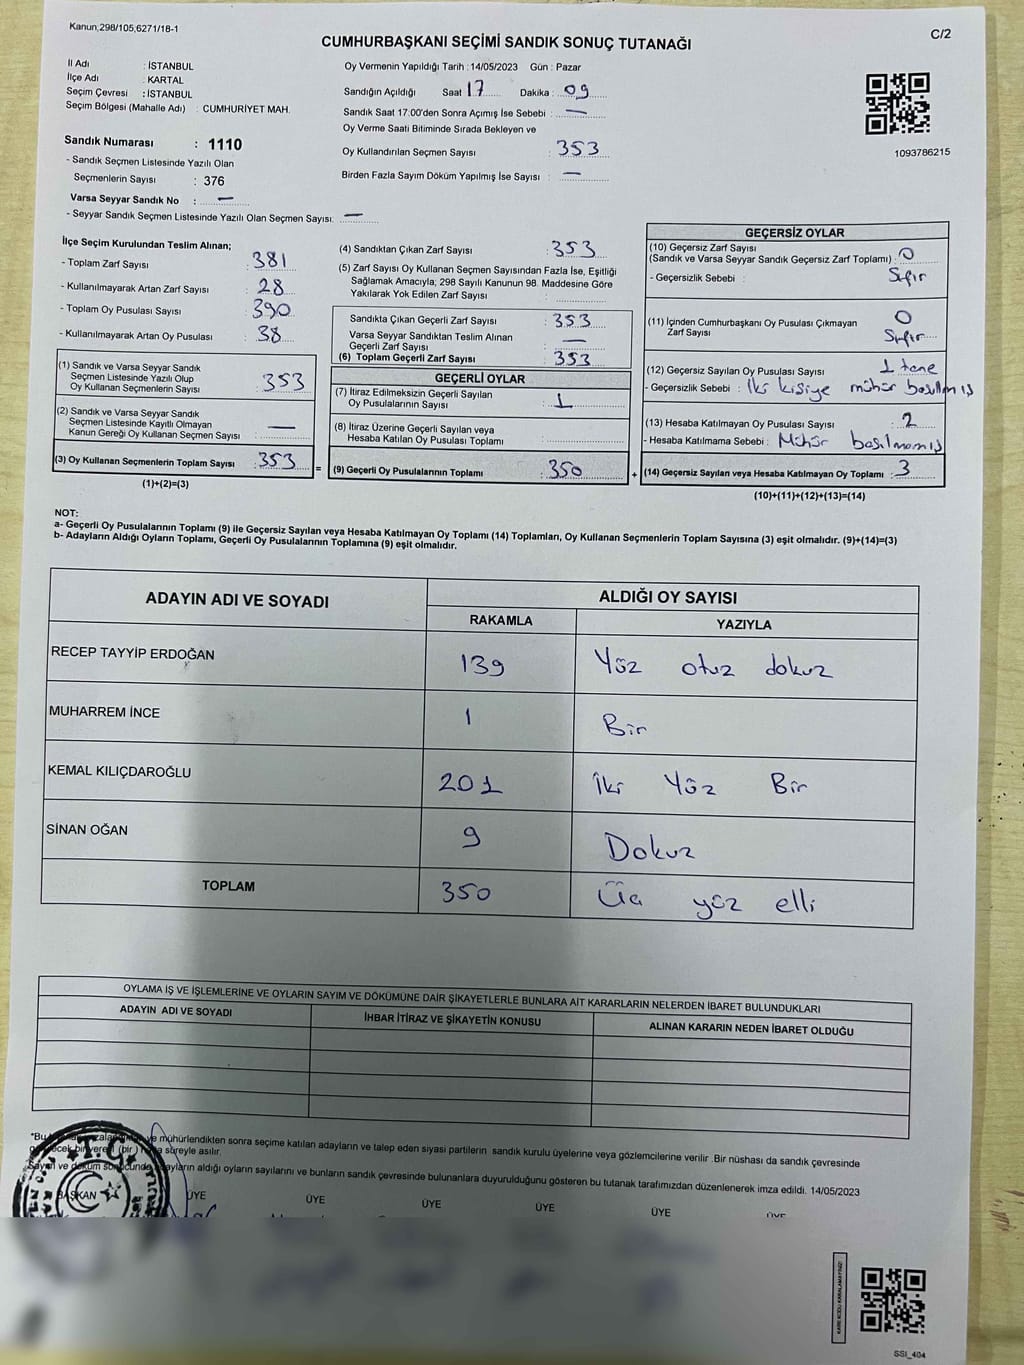 Kanun,298/105,6271/18-1
C/2
CUMHURBAŞKANI SEÇİMİ SANDIK SONUÇ TUTANAĞI
İl Adı : İSTANBUL
İlçe Adı : KARTAL
Seçim Çevresi : İSTANBUL
Seçim Bölgesi (Mahalle Adı) : CUMHURİYET MAH.
Oy Vermenin Yapıldığı Tarih :14/05/2023 Gün : Pazar
Sandığın Açıldığı Saat 17 Dakika : 09
Sandık Saat 17:00'den Sonra Açımış İse Sebebi : —
Oy Verme Saati Bitiminde Sırada Bekleyen ve
Oy Kullandırılan Seçmen Sayısı : 353
Birden Fazla Sayım Döküm Yapılmış İse Sayısı : —
1093786215
Sandık Numarası : 1110
- Sandık Seçmen Listesinde Yazılı Olan
Seçmenlerin Sayısı : 376
Varsa Seyyar Sandık No : —
- Seyyar Sandık Seçmen Listesinde Yazılı Olan Seçmen Sayısı: —
İlçe Seçim Kurulundan Teslim Alınan;
- Toplam Zarf Sayısı : 381
- Kullanılmayarak Artan Zarf Sayısı : 28
- Toplam Oy Pusulası Sayısı : 390
- Kullanılmayarak Artan Oy Pusulası : 38
(1) Sandık ve Varsa Seyyar Sandık
Seçmen Listesinde Yazılı Olup
Oy Kullanan Seçmenlerin Sayısı : 353
(2) Sandık ve Varsa Seyyar Sandık
Seçmen Listesinde Kayıtlı Olmayan
Kanun Gereği Oy Kullanan Seçmen Sayısı : —
(3) Oy Kullanan Seçmenlerin Toplam Sayısı : 353
(1)+(2)=(3)
=
(4) Sandıktan Çıkan Zarf Sayısı : 353
(5) Zarf Sayısı Oy Kullanan Seçmen Sayısından Fazla İse, Eşitliği
Sağlamak Amacıyla; 298 Sayılı Kanunun 98. Maddesine Göre
Yakılarak Yok Edilen Zarf Sayısı :
Sandıkta Çıkan Geçerli Zarf Sayısı : 353
Varsa Seyyar Sandıktan Teslim Alınan
Geçerli Zarf Sayısı : —
(6) Toplam Geçerli Zarf Sayısı : 353
GEÇERLİ OYLAR
(7) İtiraz Edilmeksizin Geçerli Sayılan
Oy Pusulalarının Sayısı : 1
(8) İtiraz Üzerine Geçerli Sayılan veya
Hesaba Katılan Oy Pusulası Toplamı :
(9) Geçerli Oy Pusulalarının Toplamı : 350
+
GEÇERSİZ OYLAR
(10) Geçersiz Zarf Sayısı
(Sandık ve Varsa Seyyar Sandık Geçersiz Zarf Toplamı) : 0
- Geçersizlik Sebebi : Sıfır
(11) İçinden Cumhurbaşkanı Oy Pusulası Çıkmayan
Zarf Sayısı : 0
Sıfır
(12) Geçersiz Sayılan Oy Pusulası Sayısı : 1 tane
- Geçersizlik Sebebi : İki kişiye mühür basılmış
(13) Hesaba Katılmayan Oy Pusulası Sayısı : 2
- Hesaba Katılmama Sebebi : Mühür basılmamış
(14) Geçersiz Sayılan veya Hesaba Katılmayan Oy Toplamı : 3
(10)+(11)+(12)+(13)=(14)
NOT:
a- Geçerli Oy Pusulalarının Toplamı (9) ile Geçersiz Sayılan veya Hesaba Katılmayan Oy Toplamı (14) Toplamları, Oy Kullanan Seçmenlerin Toplam Sayısına (3) eşit olmalıdır. (9)+(14)=(3)
b- Adayların Aldığı Oyların Toplamı, Geçerli Oy Pusulalarının Toplamına (9) eşit olmalıdır.
ADAYIN ADI VE SOYADI
ALDIĞI OY SAYISI
RAKAMLA YAZIYLA
RECEP TAYYİP ERDOĞAN 139 Yüz otuz dokuz
MUHARREM İNCE 1 Bir
KEMAL KILIÇDAROĞLU 201 İki Yüz Bir
SİNAN OĞAN 9 Dokuz
TOPLAM 350 Üç yüz elli
OYLAMA İŞ VE İŞLEMLERİNE VE OYLARIN SAYIM VE DÖKÜMÜNE DAİR ŞİKAYETLERLE BUNLARA AİT KARARLARIN NELERDEN İBARET BULUNDUKLARI
ADAYIN ADI VE SOYADI İHBAR İTİRAZ VE ŞİKAYETİN KONUSU ALINAN KARARIN NEDEN İBARET OLDUĞU
*Bu ve mühürlendikten sonra seçime katılan adayların ve talep eden siyasi partilerin sandık kurulu üyelerine veya gözlemcilerine verilir .Bir nüshası da sandık çevresinde
(bir) süreyle asılır.
Sayım ve döküm sonucunda adayların aldığı oyların sayılarını ve bunların sandık çevresinde bulunanlara duyurulduğunu gösteren bu tutanak tarafımızdan düzenlenerek imza edildi. 14/05/2023
BAŞKAN ÜYE ÜYE ÜYE ÜYE ÜYE ÜYE
T.C.
KARE KODU KARALAMAYINIZ!
SSI_404